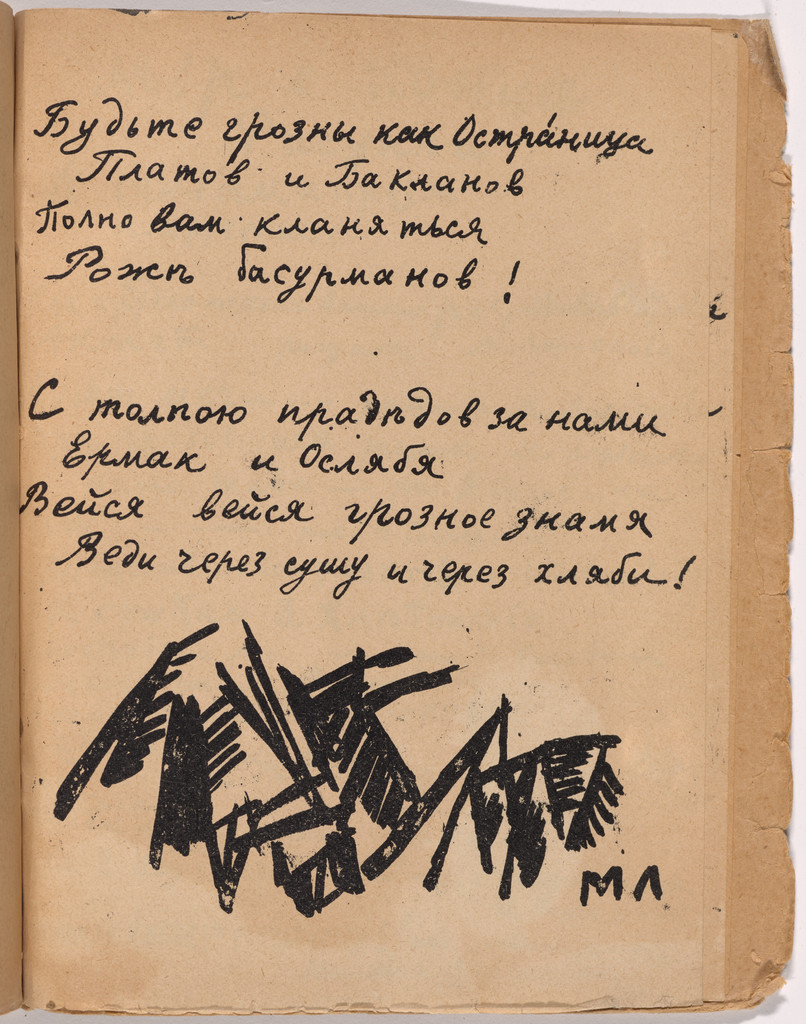 Будьте грозны как Остра́ница
Платов и Бакланов
Полно вам кланяться
Рожѣ басурманов!
С толпою прадѣдов за нами
Ермак и Ослябя
Вейся вейся грозное знамя
Веди через сушу и через хляби!
МЛ